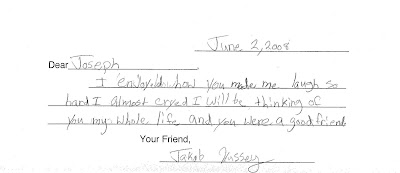 June 2, 2008
Dear Joseph
I enjoyed how you made me laugh so
hard I almost cryed I will be thinking of
you my whole life and you were a good friend
Your Friend,
Jakob Hussey